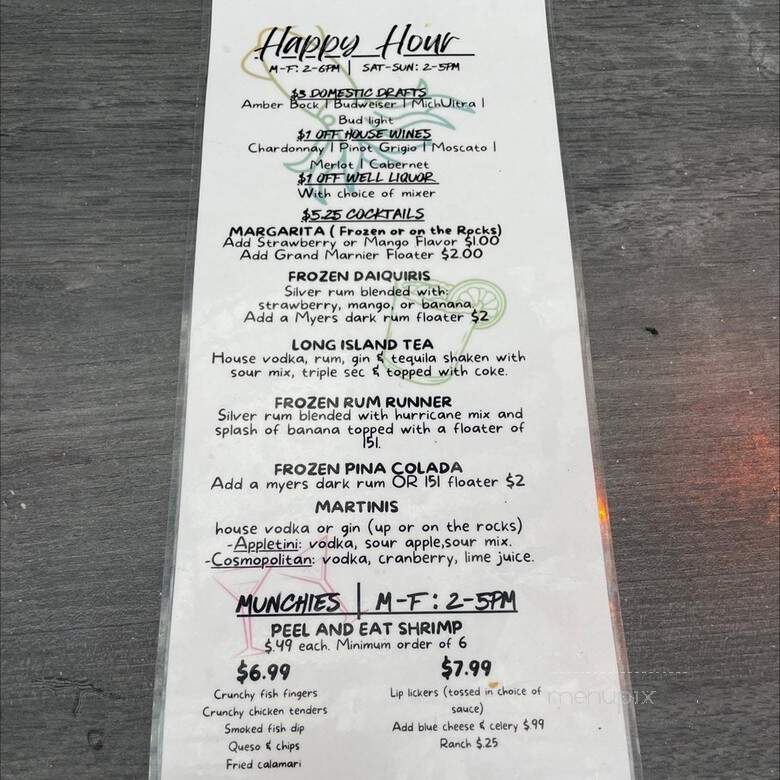 Happy Hour
M-F: 2-6PM | SAT-SUN: 2-5PM
$3 DOMESTIC DRAFTS
Amber Bock | Budweiser | MichUltra |
Bud light
$1 OFF HOUSE WINES
Chardonnay | Pinot Grigio | Moscato |
Merlot | Cabernet
$1 OFF WELL LIQUOR
With choice of mixer
$5.25 COCKTAILS
MARGARITA ( Frozen or on the Rocks)
Add Strawberry or Mango Flavor $1.00
Add Grand Marnier Floater $2.00
FROZEN DAIQUIRIS
Silver rum blended with:
strawberry, mango, or banana.
Add a Myers dark rum floater $2
LONG ISLAND TEA
House vodka, rum, gin & tequila shaken with
sour mix, triple sec & topped with coke.
FROZEN RUM RUNNER
Silver rum blended with hurricane mix and
splash of banana topped with a floater of
151.
FROZEN PINA COLADA
Add a myers dark rum OR 151 floater $2
MARTINIS
house vodka or gin (up or on the rocks)
-Appletini: vodka, sour apple,sour mix.
-Cosmopolitan: vodka, cranberry, lime juice.
MUNCHIES | M-F: 2-5PM
PEEL AND EAT SHRIMP
$.49 each. Minimum order of 6
$6.99
Crunchy fish fingers
Crunchy chicken tenders
Smoked fish dip
Queso & chips
Fried calamari
$7.99
Lip lickers (tossed in choice of
sauce)
Add blue cheese & celery $.99
Ranch $.25
menupix